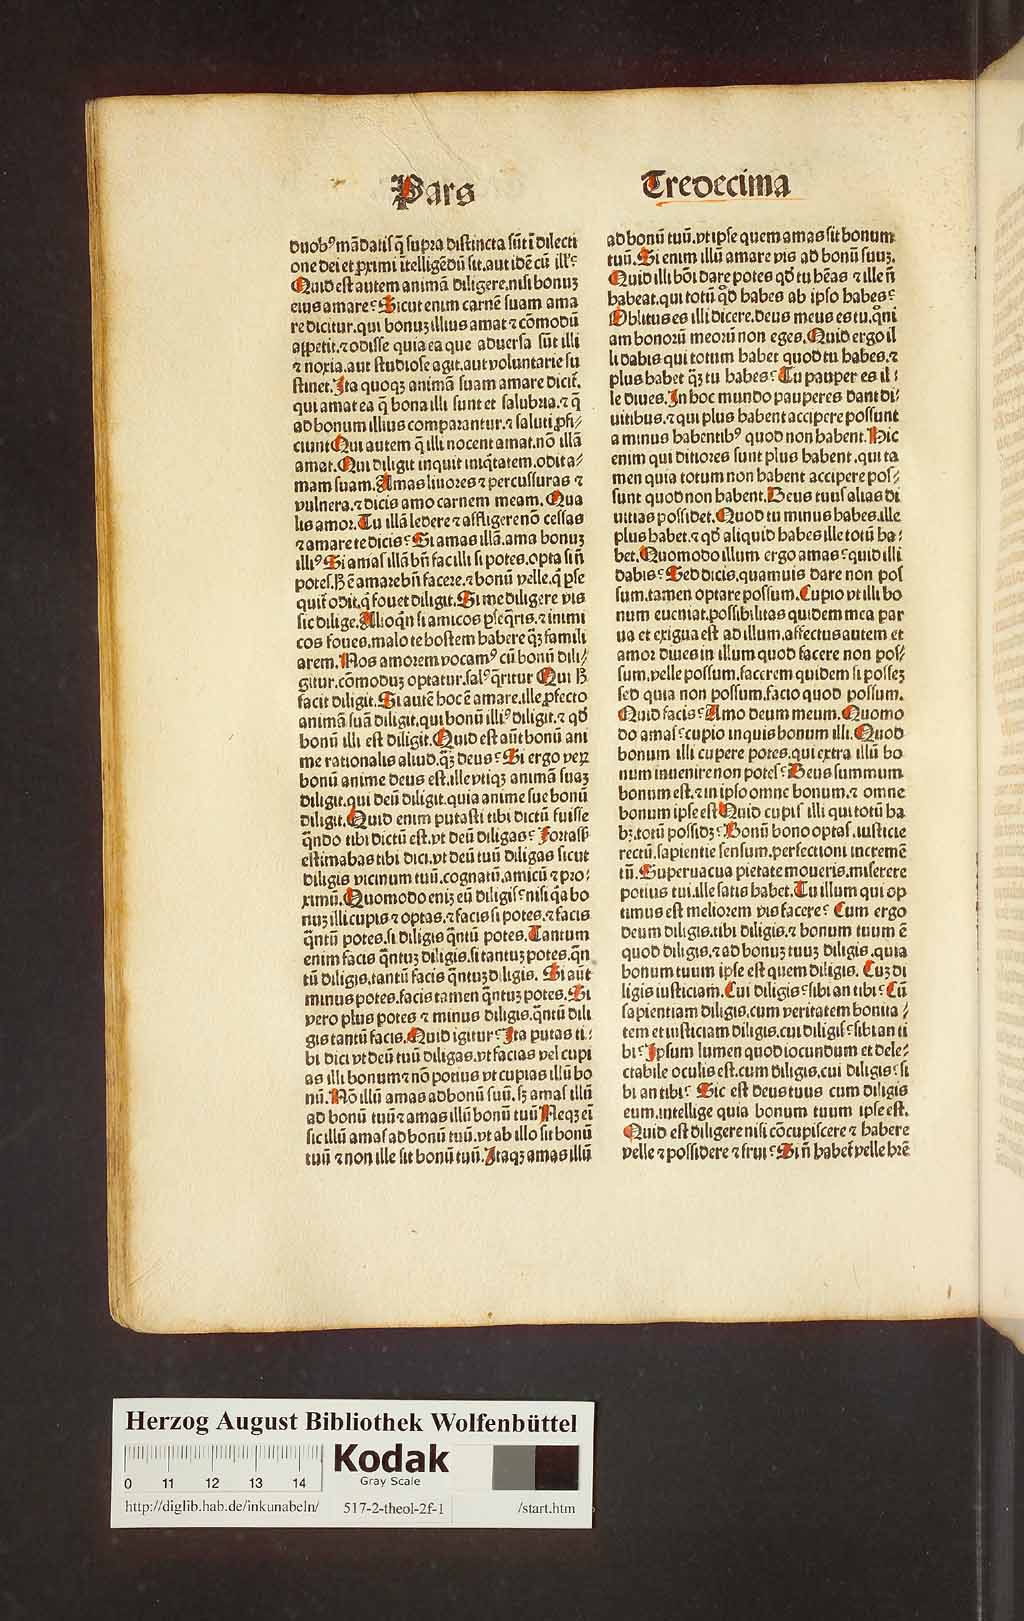 Pars
Tredecima
duobꝰ mādatis q̄ supra distincta sūt ī dilecti
one dei et ꝓximi ītelligēdū sit. aut idē cū ill'
Quid est autem animā diligere. nisi bonuꝫ
eius amare? Sicut enim carnē suam ama
re dicitur. qui bonuꝫ illius amat ⁊ cōmodū
appetit. ⁊ odisse quia ea que aduersa sūt illi
⁊ noxia. aut studiose agit. aut voluntarie su
stinet. Ita quoqꝫ animā suam amare dicit̄.
qui amat ea q̄ bona illi sunt et salubria. ⁊ q̄
ad bonum illius comparantur. ⁊ saluti ꝓfi⸗
ciunt Qui autem q̄ illi nocent amat. nō illā
amat. Qui diligit inquit iniq̄tatem. odit a⸗
mam suam. Amas liuores ⁊ percussuras ⁊
vulnera. ⁊ dicis amo carnem meam. Qua
lis amor. Tu illā ledere ⁊ affligere nō cessas
⁊ amare te dicis? Si amas illā. ama bonuꝫ
illiꝰ Si amas illā bn̄ fac illi si potes. opta si n̄
potes. H̄ ē amare bn̄ facere. ⁊ bonū velle. q̄ ꝑse
quit̄ odit. q̄ fouet diligit. Si me diligere vis
sic dilige. Alioqn̄ si amicos ꝑseq̄ris. ⁊ inimi
cos foues. malo te hostem habere q̄ꝫ famili
arem. Nos amorem vocamꝰ cū bonū dili⸗
gitur. cōmoduꝫ optatur. salꝰ q̄ritur Qui h̄
facit diligit. Si autē hoc ē amare. ille ꝓfecto
animā suā diligit. qui bonū illiꝰ diligit. ⁊ qđ
bonū illi est diligit. Quid est aūt bonū ani
me rationalis aliud. q̄ꝫ deus? Si ergo veꝝ
bonū anime deus est. ille vtiqꝫ animā suaꝫ
diligit. qui deū diligit. quia anime sue bonū
diligit. Quid enim putasti tibi dictū fuisse
qn̄do tibi dictū est. vt deū diligas? Fortassꝭ
estimabas tibi dici. vt deū tuū diligas sicut
diligis vicinum tuū. cognatū. amicū ⁊ pro⸗
ximū. Quomodo eniꝫ eū diligis? nisi qa bo
nuꝫ illi cupis ⁊ optas. ⁊ facis si potes. ⁊ facis
q̄ntū potes. si diligis q̄ntū potes. Tantum
enim facis q̄ntuꝫ diligis. si tantuꝫ potes. q̄n
tū diligis. tantū facis q̄ntuꝫ diligis. Si aūt
minus potes. facis tamen q̄ntuꝫ potes. Si
vero plus potes ⁊ minus diligis. q̄ntū dili
gis tantū facis. Quid igitur? Ita putas ti⸗
bi dici vt deū tuū diligas. vt facias vel cupi
as illi bonum ⁊ nō potius vt cupias illū bo
nū. Nō illū amas ad bonū suū. sꝫ amas illū
ad bonū tuū ⁊ amas illū bonū tuū Neqꝫ eī
sic illū amas ad bonū tuū. vt ab illo sit bonū
tuū ⁊ non ille sit bonū tuū. Itaqꝫ amas illū
ad bonū tuū. vt ipse quem amas sit bonum
tuū. Si enim illū amare vis ad bonū suuꝫ.
Quid illi boī dare potes qđ tu hēas ⁊ ille n̄
habeat. qui totū qđ habes ab ipso habes?
Oblitus es illi dicere. deus meus es tu. qm̄
am bonorū meorū non eges. Quid ergo il
li dabis qui totum habet quod tu habes. ⁊
plus habet q̄ꝫ tu habes? Tu pauper es il⸗
le diues. In hoc mundo pauperes dant di⸗
uitibus. ⁊ qui plus habent accipere possunt
a minus habentibꝰ quod non habent. Hic
enim qui ditiores sunt plus habent. qui ta
men quia totum non habent accipere pos⸗
sunt quod non habent. Deus tuus alias di
uitias possidet. Quod tu minus habes. ille
plus habet. ⁊ qđ aliquid habes ille totū ha⸗
bet. Quomodo illum ergo amas? quid illi
dabis? Sed dicis. quamuis dare non pos
sum. tamen optare possum. Cupio vt illi bo
num eueniat. possibilitas quidem mea par
ua et exigua est ad illum. affectus autem et
amor diues in illum quod facere non pos⸗
sum. velle possum. facerem quidem si posseꝫ
sed quia non possum. facio quod possum.
Quid facis? Amo deum meum. Quomo
do amas? cupio inquis bonum illi. Quod
bonum illi cupere potes. qui extra illū bo
num inuenire non potes? Deus summum
bonum est. ⁊ in ipso omne bonum. ⁊ omne
bonum ipse est Quid cupis illi qui totū ha
bꝫ. totū possidꝫ? Bonū bono optas. iusticie
rectū. sapientie sensum. perfectioni incremē
tū. Superuacua pietate moueris. miserere
potius tui. ille satis habet. Tu illum qui op
timus est meliorem vis facere? Cum ergo
deum diligis. tibi diligis. ⁊ bonum tuum ē
quod diligis. ⁊ ad bonuꝫ tuuꝫ diligis. quia
bonum tuum ipse est quem diligis. Cuꝫ di
ligis iusticiam. Cui diligis? sibi an tibi? Cū
sapientiam diligis. cum veritatem bonita⸗
tem et iusticiam diligis. cui diligis? sibi an ti
bi? Ipsum lumen quod iocundum et dele⸗
ctabile oculis est. cum diligis. cui diligis? si
bi an tibi? Sic est deus tuus cum diligis
eum. intellige quia bonum tuum ipse est.
Quid est diligere nisi cōcupiscere ⁊ habere
velle ⁊ possidere ⁊ frui? Si n̄ habet̄ velle hr̄e
Herzog August Bibliothek Wolfenbüttel
0 11 12 13 14
Kodak
Gray Scale
http://diglib.hab.de/inkunabeln/ 517-2-theol-2f-1 /start.htm